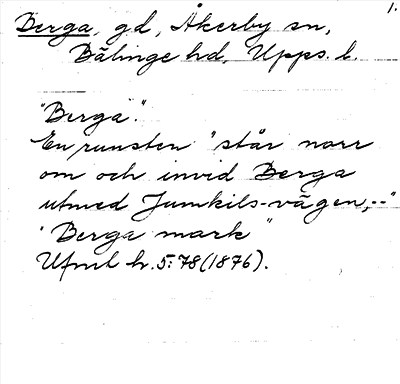 1.
Berga, gd, Åkerby sn,
Bälinge hd, Upps. l.
"Berga."
En runsten "står norr
om och invid Berga
utmed Jumkils-vägen,--"
"Berga mark"
Ufmt h. 5:78 (1876).